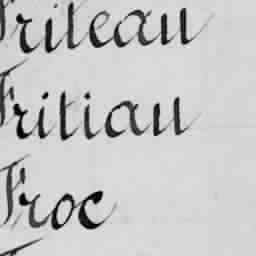 Frileau
Fritiau
Froc